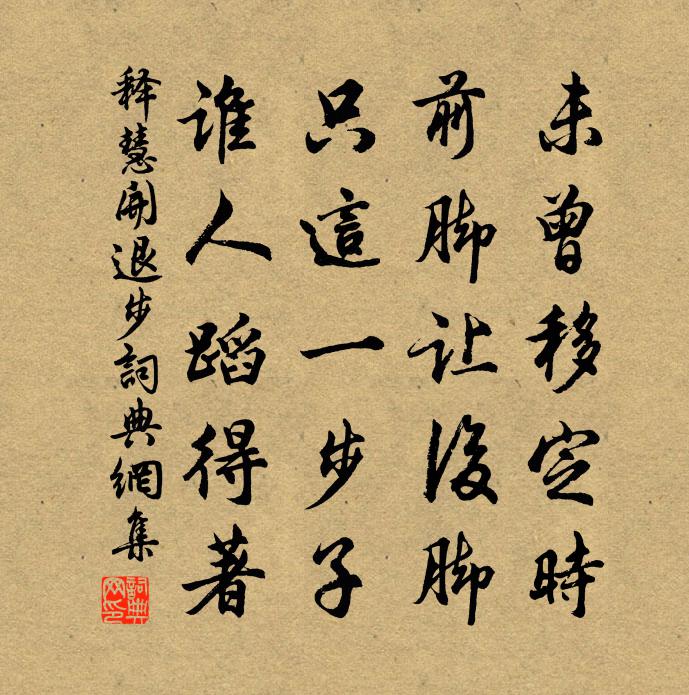 未曾移定時
前脚让後脚
只這一步子
谁人蹈得著
释慧開退步詞典網集
詞典網印